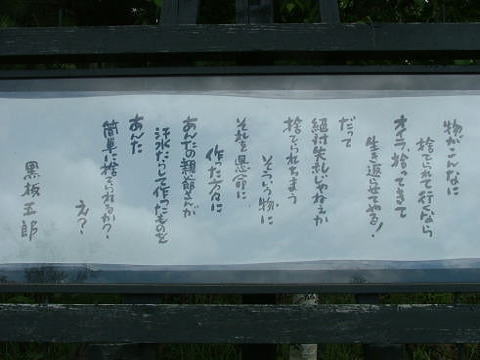 物がこんなに
捨てられて行くなら
オイラ拾ってきて
生き返せてやる!
だって
絶対失礼じゃねえか
捨てられちまう
そういう物に
それを懸命に
作った方々に
あんたの親爺さんが
汗水たらして作ったものを
あんた
簡単に捨てられっか?
え?
黒板五郎